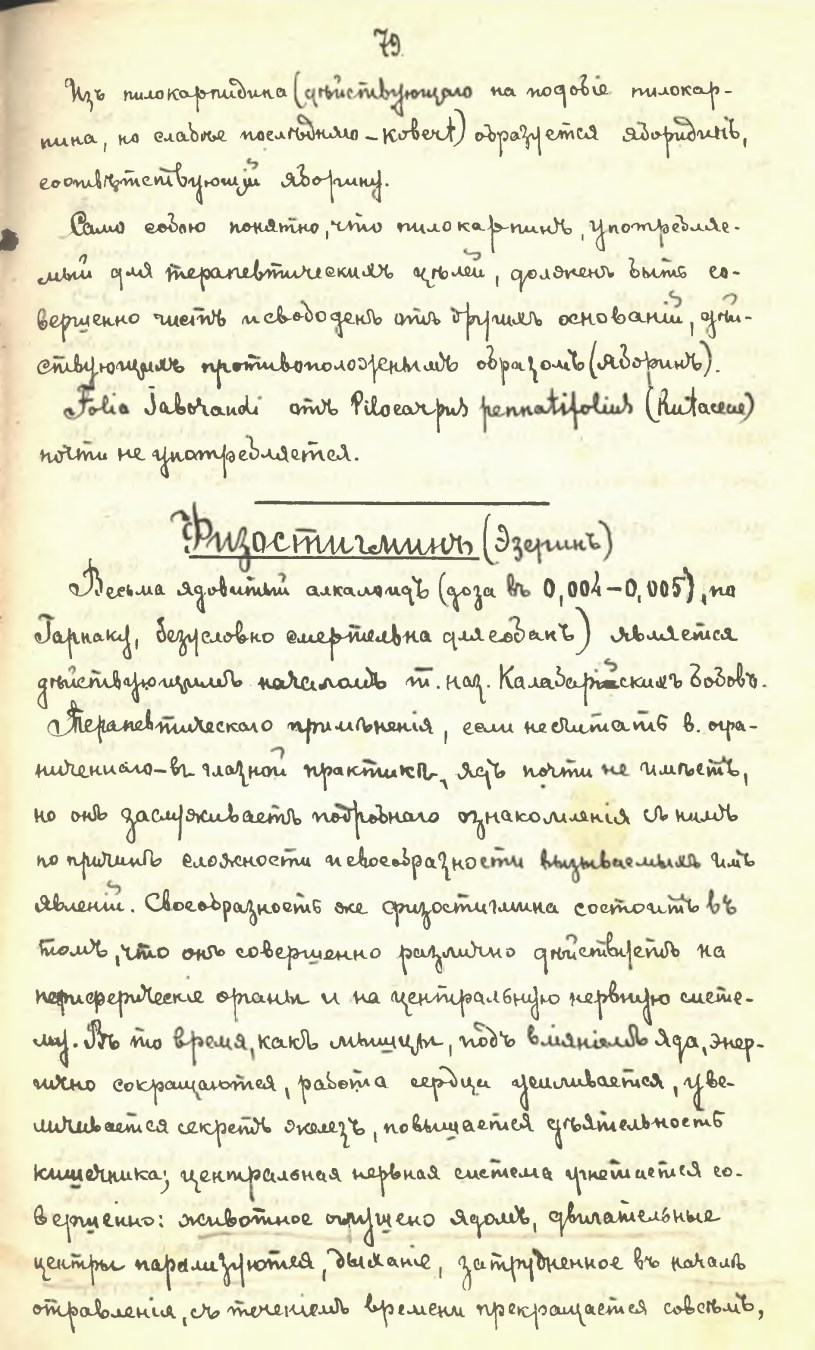 79
Изъ пилокарпидина (дѣйствующаго на подобіе пилокар-
пина, но слабѣе послѣдняго – Kobert) образуется яборидинъ,
соотвѣтствующій яборину.
Само собою понятно, что пилокарпинъ, употребляе-
мый для терапевтическихъ цѣлей, долженъ быть со-
вершенно чистъ и свободенъ отъ другихъ основаній, дѣй-
ствующихъ противоположнымъ образомъ (яборинъ).
Folia Jaborandi отъ Pilocarpus pennatifolius (Rutaceae)
почти не употребляется.
Физостигминъ (Эзеринъ)
Весьма ядовитый алкалоидъ (доза въ 0,004–0,005), по
Гарнаку, безусловно смертельна для собакъ) является
дѣйствующимъ началомъ т. наз. Калабарійскихъ бобовъ.
Терапевтическаго примѣненія, если не считать в. огра-
ниченнаго – въ глазной практикѣ, ядъ почти не имѣетъ,
но онъ заслуживаетъ подробнаго ознакомленія съ нимъ
по причинѣ сложности и своеобразности вызываемыхъ имъ
явленій. Своеобразность же физостигмина состоитъ въ
томъ, что онъ совершенно различно дѣйствуетъ на
периферическіе органы и на центральную нервную систе-
му. Въ то время, какъ мышцы, подъ вліяніемъ яда, энер-
гично сокращаются, работа сердца усиливается, уве-
личивается секретъ железъ, повышается дѣятельность
кишечника; центральная нервная система угнетается со-
вершенно: животное оглушено ядомъ, двигательные
центры парализуются, дыханіе, затрудненное въ началѣ
отравленія, съ теченіемъ времени прекращается совсѣмъ,